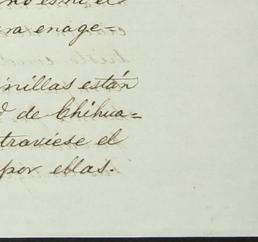 ra enage=
inillas están
d de Chihua=
traviese el
por ellas.